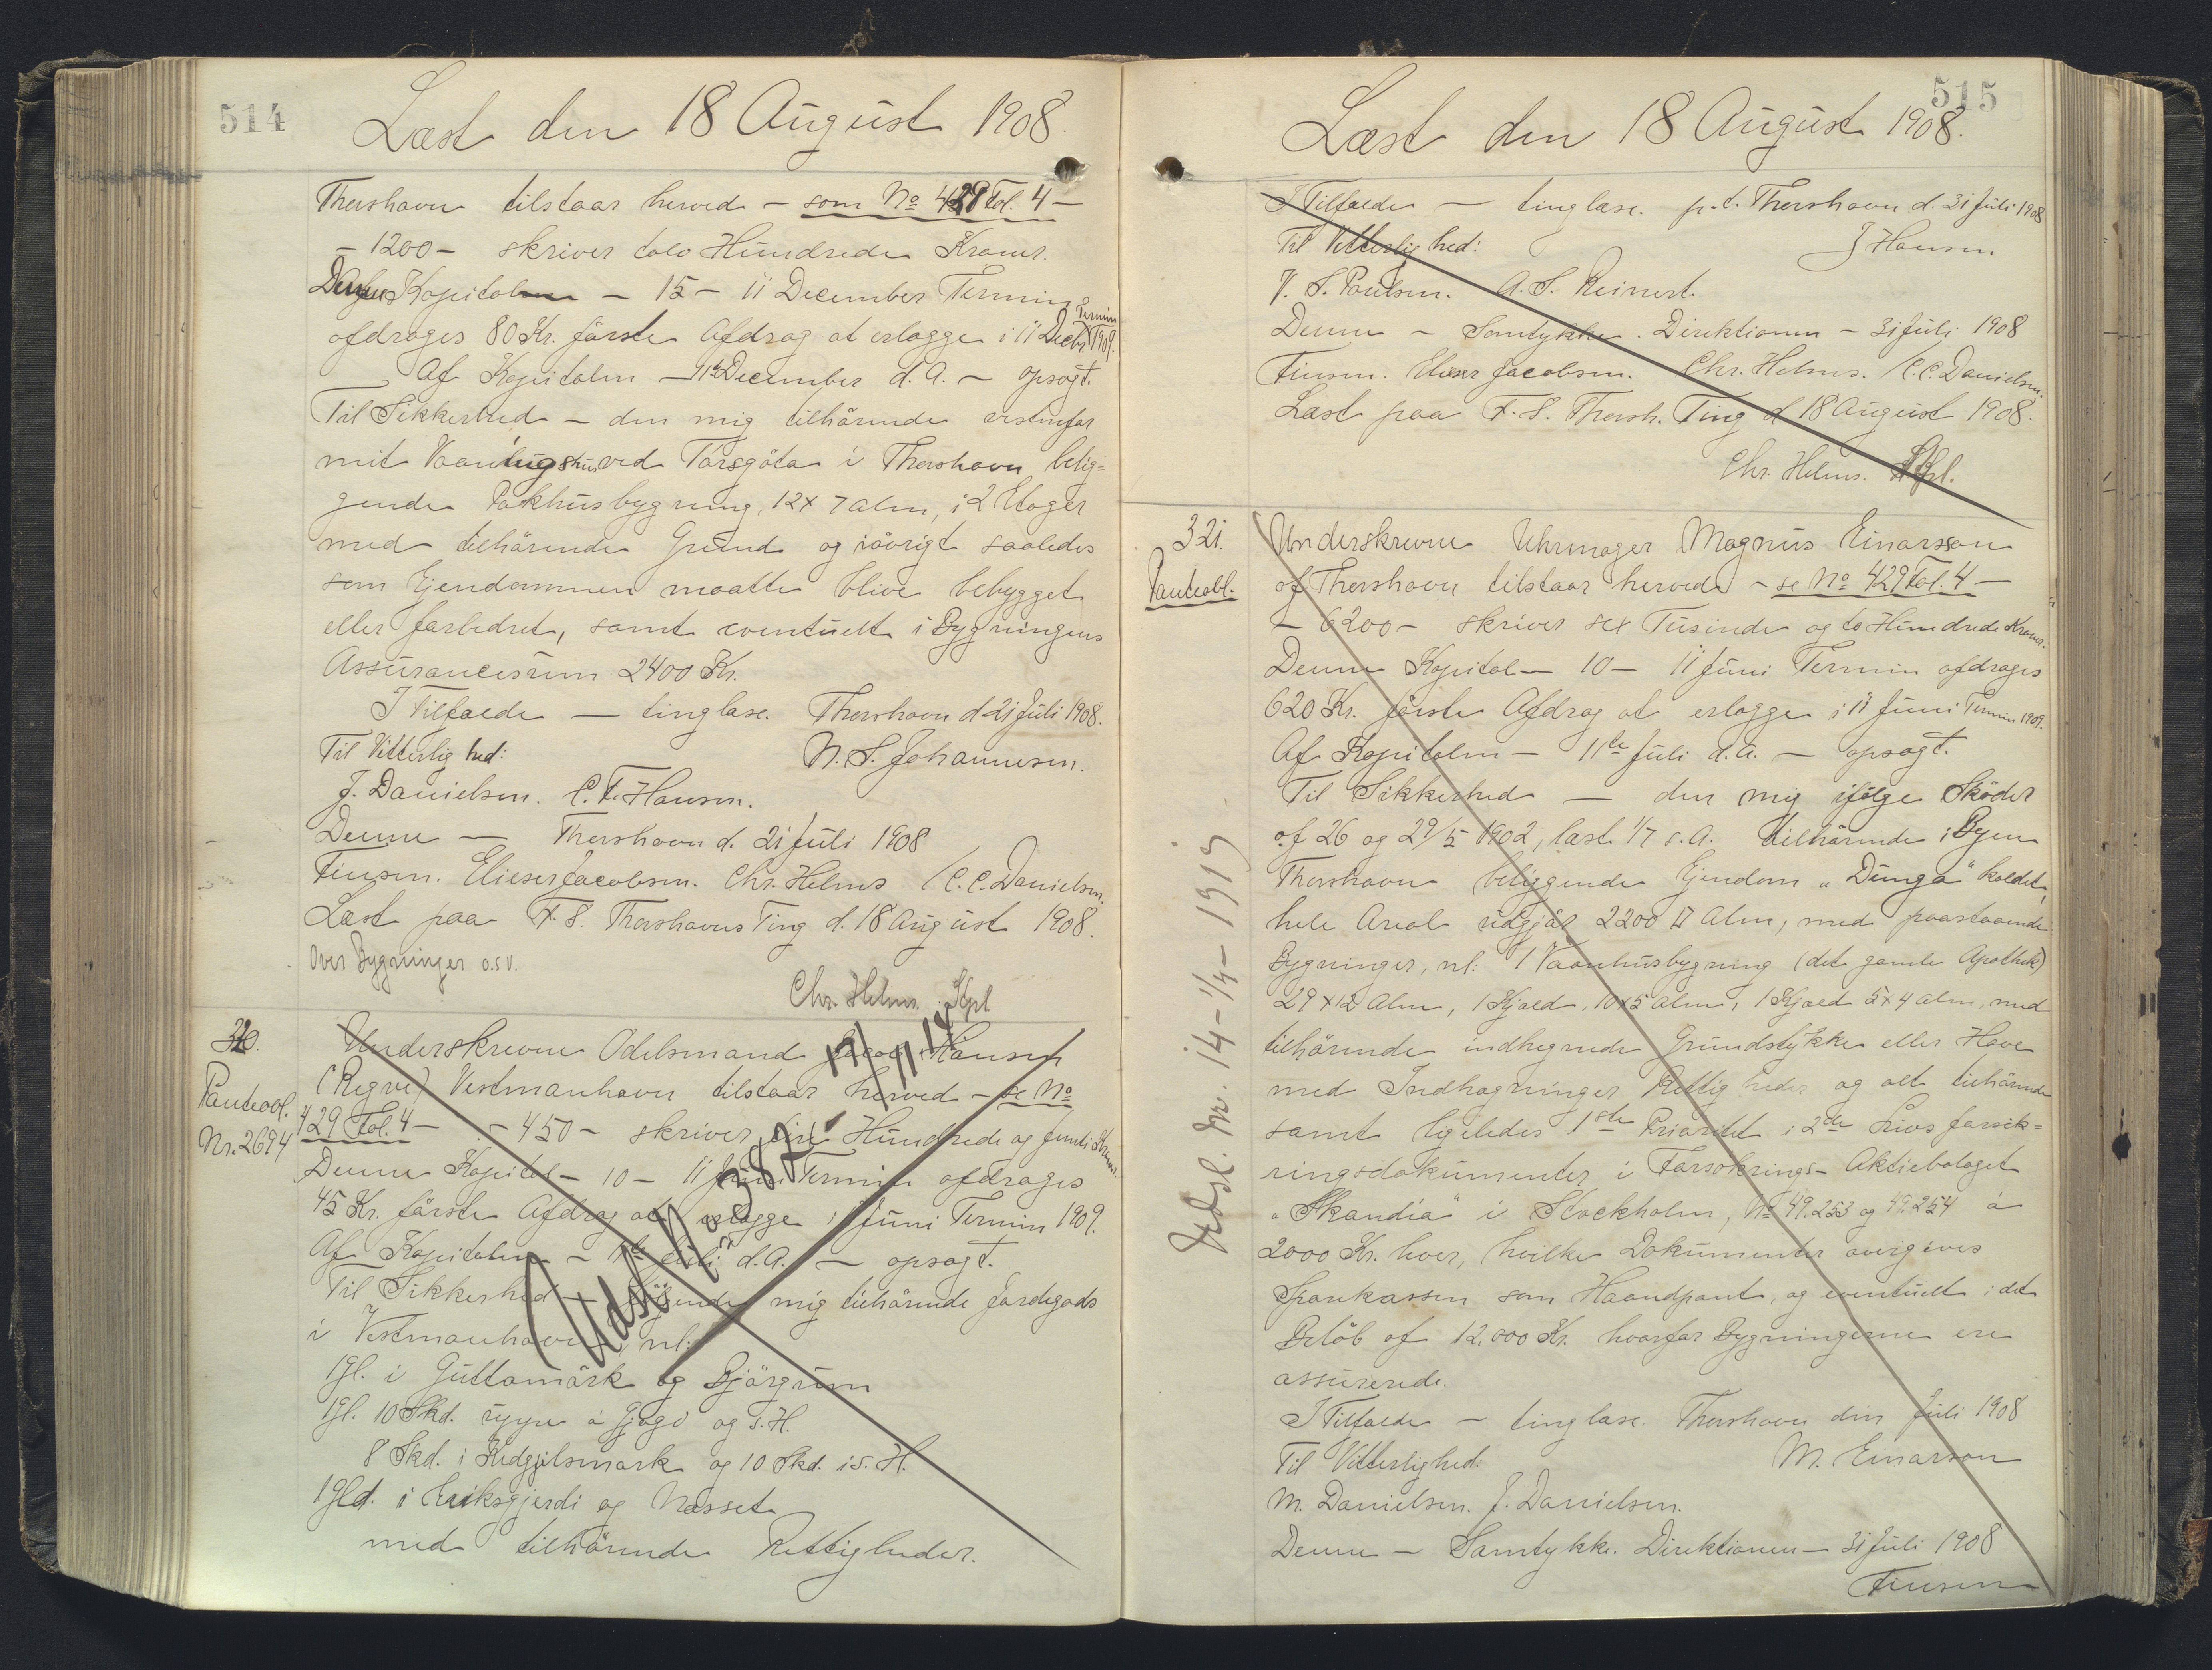 514
Læst den 18 August 1908.
Thorshavn tilstaar herved - som No 429 Fol. 4 -
- 1200 - skriver tolv Hundrede Kroner.
Kapital - 15 - 11 December Termin
afdrages 80 Kr. første Afdrag at erlægge i 11 Decbr. Termin 1909.
Af Kapitalen - 11te December d. A. - opsagt.
Til Sikkerhed - den mig tilhørende østenfor
mit Vaaningshus ved Torsgöta i Thorshavn belig=
gende Pakhusbygning, 12 x 7 Alen, i 2 Etager
med tilhørende Grund og iøvrigt saaledes
som Ejendommen maatte blive bebygget
eller forbedret, samt eventuelt i Bygningens
Assurancesum 2400 Kr.
I Tilfælde - tinglæse. Thorshavn d. 21 Juli 1908.
Til Vitterlighed: N. S. Johannesen.
J. Danielsen. C. F. Hansen.
Denne - Thorshavn d. 21 Juli 1908
Finsen. Elieser Jacobsen. Chr. Helms / C. C. Danielsen.
Læst paa F. S. Thorshavns Ting d. 18 August 1908.
Over Bygninger o.s.v.
Chr. Helms. Kpl.
320.
Panteobl.
Nr. 2694
Underskrevne Odelsmand Hansen
(Regve) Vestmanhavn tilstaar herved - se No
429 Fol. 4 - - 450 - skriver fire Hundrede og femti Kroner.
Denne Kapital - 10 - 11 Juni Termin afdrages
45 Kr. første Afdrag at erlægge i 11 Juni Termin 1909.
Af Kapitalen - 11te Juli d. A. - opsagt.
Til Sikkerhed - følgende mig tilhørende Jordegods
i Vestmanhavn, nl:
1 Gl. i Guttamörk og Bjørgum
1 Gl. 10 Skd. uppi á Gjógv og s. H.
8 Skd. i Kidgjilsmørk og 10 Skd. i s. H.
1 Gld. i Eiriksgjerdi og Nasset
med tilhørende Rettigheder.
Udsl. No 382
515
Læst den 18 August 1908.
I Tilfælde - tinglæse. p.t. Thorshavn d. 31 Juli 1908
Til Vitterlighed: J Hansen.
V. S. Poulsen. A. S. Reinert.
Denne - Samtykke. Direktionen - 31 Juli 1908
Finsen. Elieser Jacobsen. Chr. Helms. / C. C. Danielsen.
Læst paa F. S. Thorsh. Ting d 18 August 1908.
Chr. Helms. Kpl.
321.
Panteobl.
Udsl. Nr. 14 - 1/4 - 1919
Underskrevne Uhrmager Magnus Einarsson
af Thorshavn tilstaar herved - se No 429 Fol. 4 -
- 6200 - skriver sex Tusinde og to Hundrede Kroner.
Denne Kapital - 10 - 11 Juni Termin afdrages
620 Kr. første Afdrag at erlægge i 11 Juni Termin 1909.
Af Kapitalen - 11te Juli d. A. - opsagt.
Til Sikkerhed - den mig ifølge Skøder
af 26 og 29/5 1902, læst 1/7 s. A. tilhørende i Byen
Thorshavn beliggende Ejendom "Dunga" kaldet,
hele Areal udgjør 2200 □ Alen, med paastaaende
Bygninger, nl: 1 Vaanhusbygning (det gamle Apothek)
29 x 12 Alen, 1 Hjald, 10 x 5 Alen, 1 Hjald 5 x 4 Alen, med
tilhørende indhegnede Grundstykke eller Have
med Indhegninger Rettigheder og alt tilhørende
samt ligeledes 1ste Prioritet i 2de Livsforsik=
ringsdokumenter i Försäkrings-Aktiebolaget
"Skandia" i Stockholm, No 49.253 og 49.254 á
2000 Kr. hver, hvilke Dokumenter overgives
Sparekassen som Haandpant, og eventuelt i det
Beløb af 12.000 Kr. hvorfor Bygningerne ere
assurerede.
I Tilfælde - tinglæse. Thorshavn den Juli 1908
Til Vitterlighed: M. Einarsson
M. Danielsen. J. Danielsen.
Denne - Samtykke. Direktionen - 31 Juli 1908
Finsen